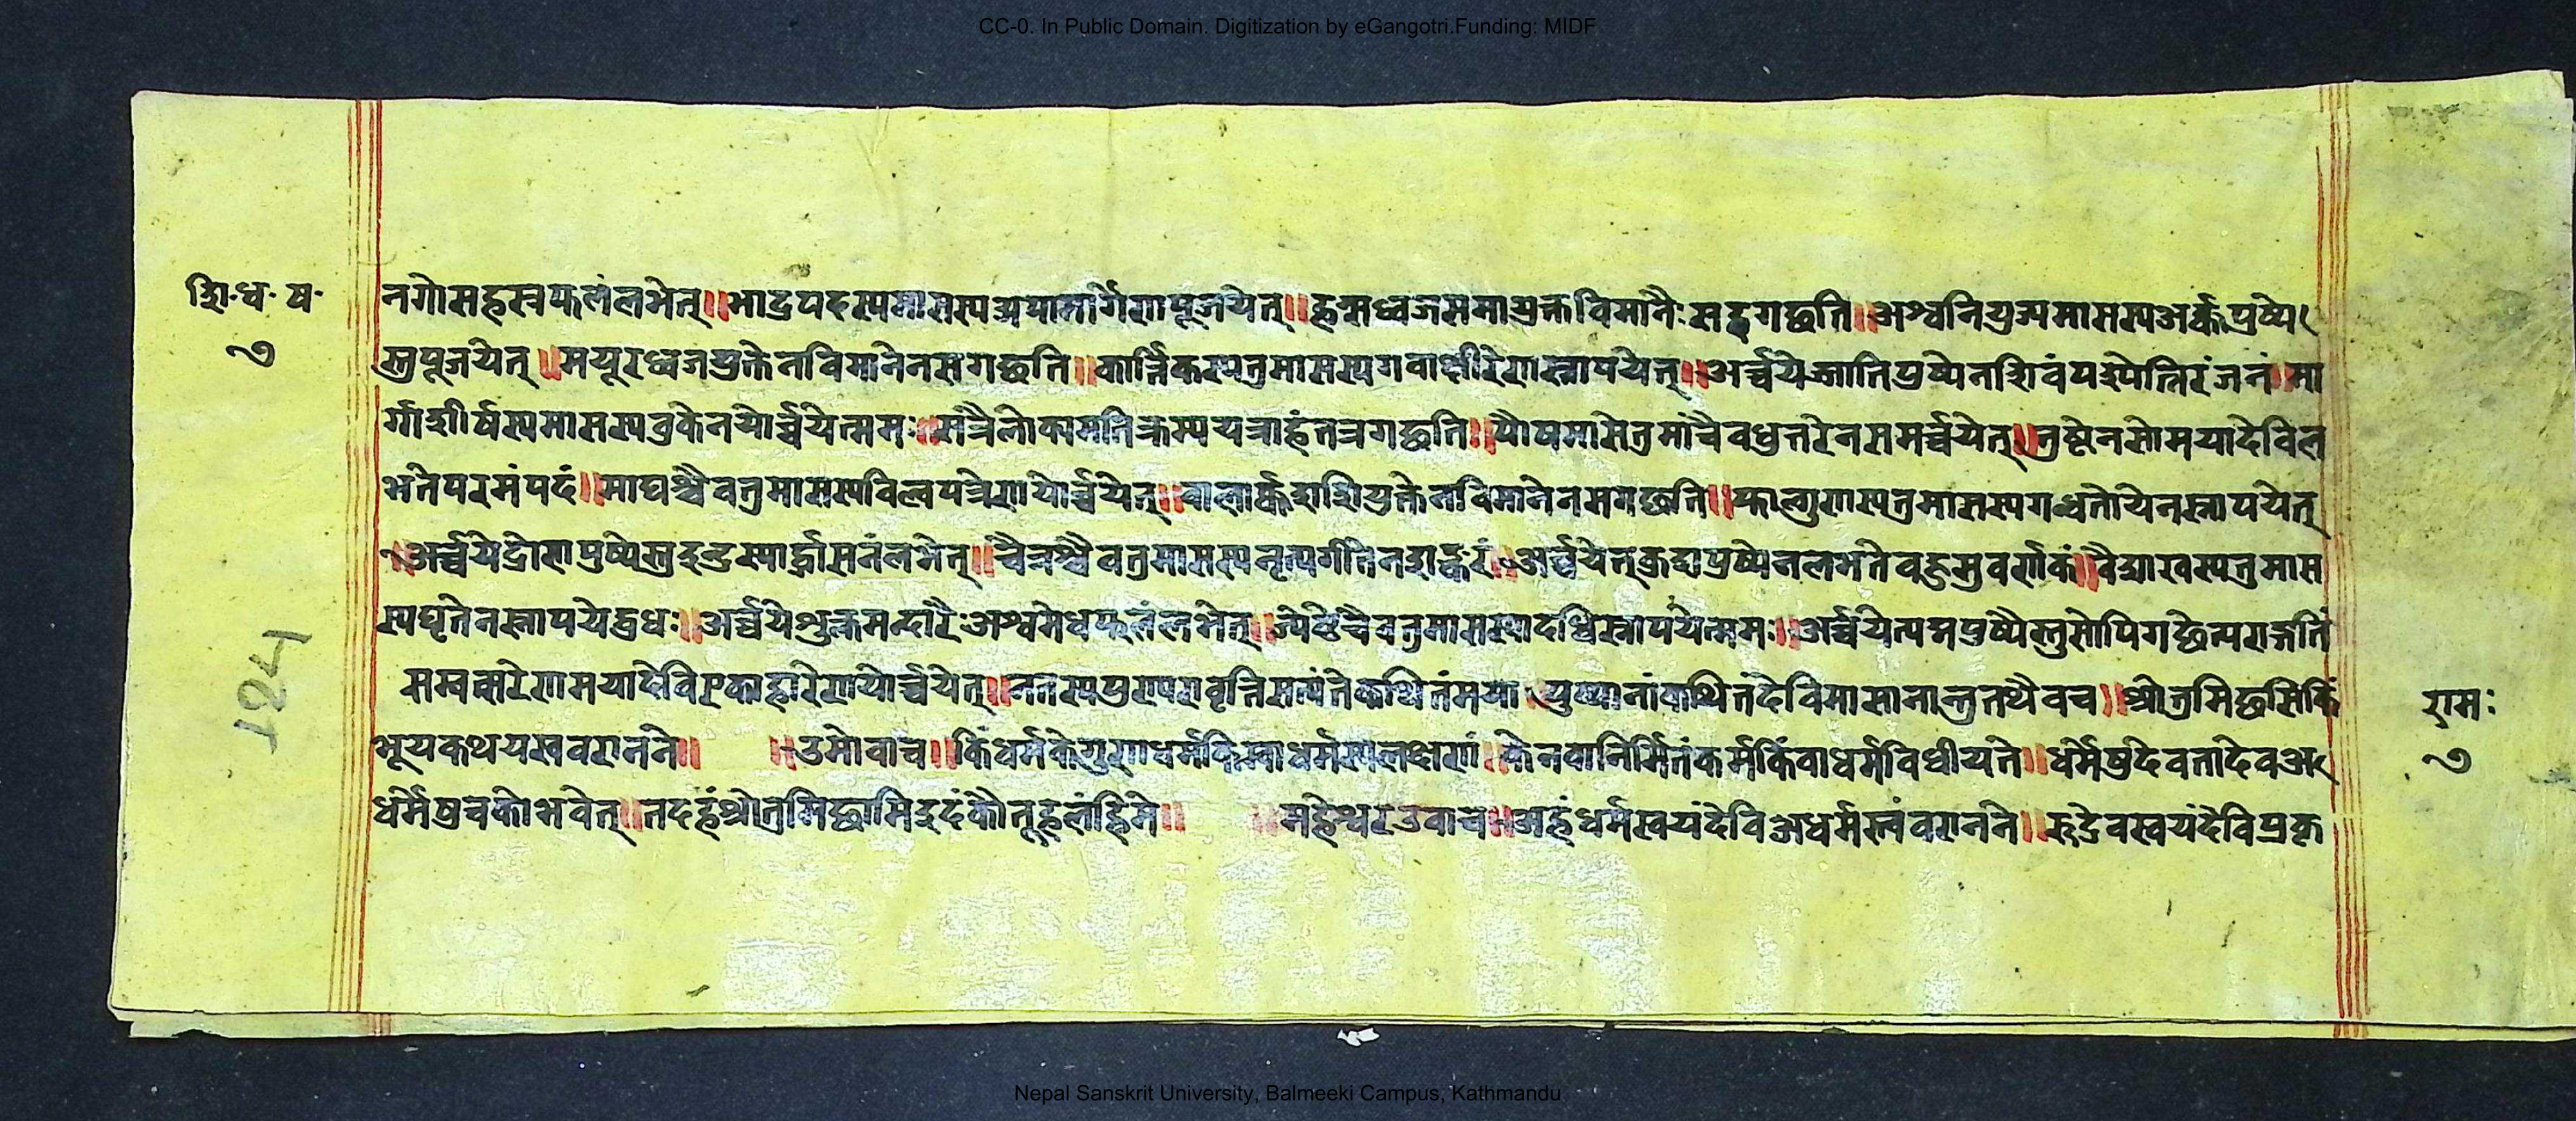 CC-0. In Public Domain. Digitization by eGangotri.Funding: MIDF
शि·ध· ष·
७
नगोसहस्त्रफलंलभेत्॥भाद्रपदस्यमासस्यअपामार्गेणपूजयेत्॥हन्सध्वजसमायुक्तविमानैःसहगछति॥अश्वनियुज्यमासस्यअर्कपुष्पे
स्तुपूजयेत्॥मयूरध्वजयुक्तेनविमानेनसगछति॥कार्त्तिकस्यतुमासस्यगवाक्षीरेणस्नापयेत्॥अर्च्चयेज्जातिपुष्पेनशिवंपश्येन्निरंजनं॥मा
र्गाशीर्षस्यमासस्यवुकेनयोर्च्चयेत्ममः॥सत्रैलोक्यमतिक्रम्ययत्राहंतत्रगछति॥पौषमासेतुमांचैवधुत्तरेनसमर्च्चयेत्॥तुष्टेनसोमयादेविल
भतेपरमंपदं॥माघश्चैवतुमासस्यविल्वपत्रेणयोर्च्चयेत्॥वालार्कशशियुक्तेनविमानेनसगछति॥फाल्गुणस्यतुमासस्यगन्धतोयेनस्नापयेत्
॥अर्च्चयेद्रोणपुष्पेस्तुइन्द्रस्यार्द्धासनंलभेत्॥चैत्रश्चैवतुमासस्यनृत्यगीतेनशङ्करं॥अर्च्चयेत्कुशपुष्पेनलभतेवहुसुवर्णकं॥वैशाखस्यतुमास
स्यघृतेनस्नापयेद्वुधः॥अर्च्चयेशुक्लमन्दारैःअश्वमेधफलंलभेत्॥ज्येष्ठेचैवतुमासस्यदधिस्नापयेत्ममः॥अर्च्चयेत्पद्मपुष्पैस्तुसोपिगछेत्पराङ्गतिं
सम्वत्सरेणमयादेविएकाहारेणयोर्च्चयेत्॥नतस्यपुणरावृत्तिसत्यंतेकथितंमया॥पुष्पानांकथितंदेविमासानान्तुतथैवच॥श्रोतुमिछसिकिं
भूयकथयस्ववरानने॥ ॥उमोवाच॥किंधर्मकोगुणधर्मकिम्वाधर्मस्यलक्षणं॥केनवानिर्मितंकर्मकिंवाधर्मविधीयते॥धर्मेषुदेवतादेवअ
धर्मेषुचकोभवेत्॥तदहंश्रोतुमिछामिइदंकौतूहलंहिमे॥ ॥महेश्वरउवाच॥अहंधर्मस्वयंदेविअधर्मस्त्वंवरानने॥रुद्रेवस्वयंदेविप्रकृ
रामः
७
124
Nepal Sanskrit University, Balmeeki Campus, Kathmandu